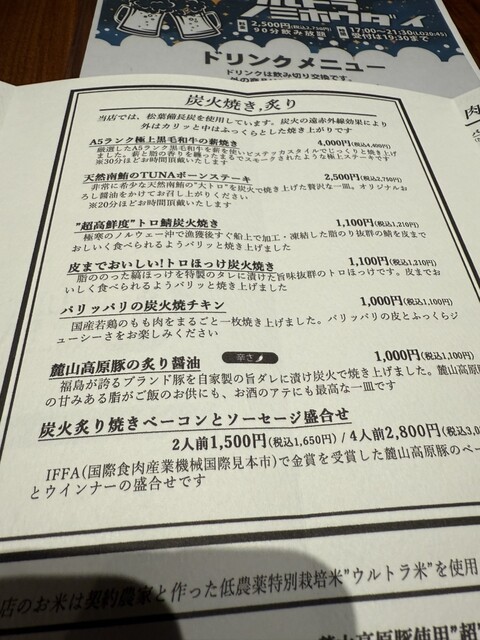 ウルトラ
ミホウダイ
2,500円(税込2,750円)
90分飲み放題
17:00〜21:30(LO20:45)
受付は19:30まで
ドリンクメニュー
ドリンクは飲み切り交換です。
肉
炭火焼き,炙り
当店では、松葉備長炭を使用しています。炭火の遠赤外線効果により
外はカリッと中はふっくらとした焼き上がりです
A5ランク極上黒毛和牛の薪焼き 4,000円(税込4,400円)
厳選したA5ランク黒毛和牛を薪を使いビステッカスタイルでじっくりと焼き上げ
ました。薪と脂の香りを纏ったまるでスモークされたような極上ステーキです
※30分ほどお時間頂戴いたします
天然南鮪のTUNAボーンステーキ 2,500円(税込2,750円)
非常に希少な天然南鮪の"大トロ"を炭火で焼き上げた贅沢な一皿。オリジナルお
ろし醤油をかけてお召し上がりください
※20分ほどお時間頂戴いたします
"超高鮮度"トロ鯖炭火焼き 1,100円(税込1,210円)
極寒のノルウェー沖で漁獲後すぐ船上で加工・凍結した脂のり抜群の鯖を皮まで
おいしく食べられるようパリッと焼き上げました
皮までおいしい!トロほっけ炭火焼き 1,100円(税込1,210円)
脂ののった縞ほっけを特製のタレに漬けた旨味抜群のトロほっけです。皮までお
いしく食べられるようパリッと焼き上げました
パリッパリの炭火焼チキン 1,000円(税込1,100円)
国産若鶏のもも肉をまるごと一枚焼き上げました。パリッパリの皮とふっくらジ
ューシーさをお楽しみください
麓山高原豚の炙り醤油 辛さ 1,000円(税込1,100円)
福島が誇るブランド豚を自家製の旨ダレに漬け炭火で焼き上げました。麓山高原
の甘みある脂がご飯のお供にも、お酒のアテにも最高な一皿です
炭火炙り焼きベーコンとソーセージ盛合せ
2人前1,500円(税込1,650円) / 4人前2,800円(税込3,0
IFFA(国際食肉産業機械国際見本市)で金賞を受賞した麓山高原豚のベー
とウインナーの盛合せです
店のお米は契約農家と作った低農薬特別栽培米"ウルトラ米"を使用
麓山高原豚使用"超